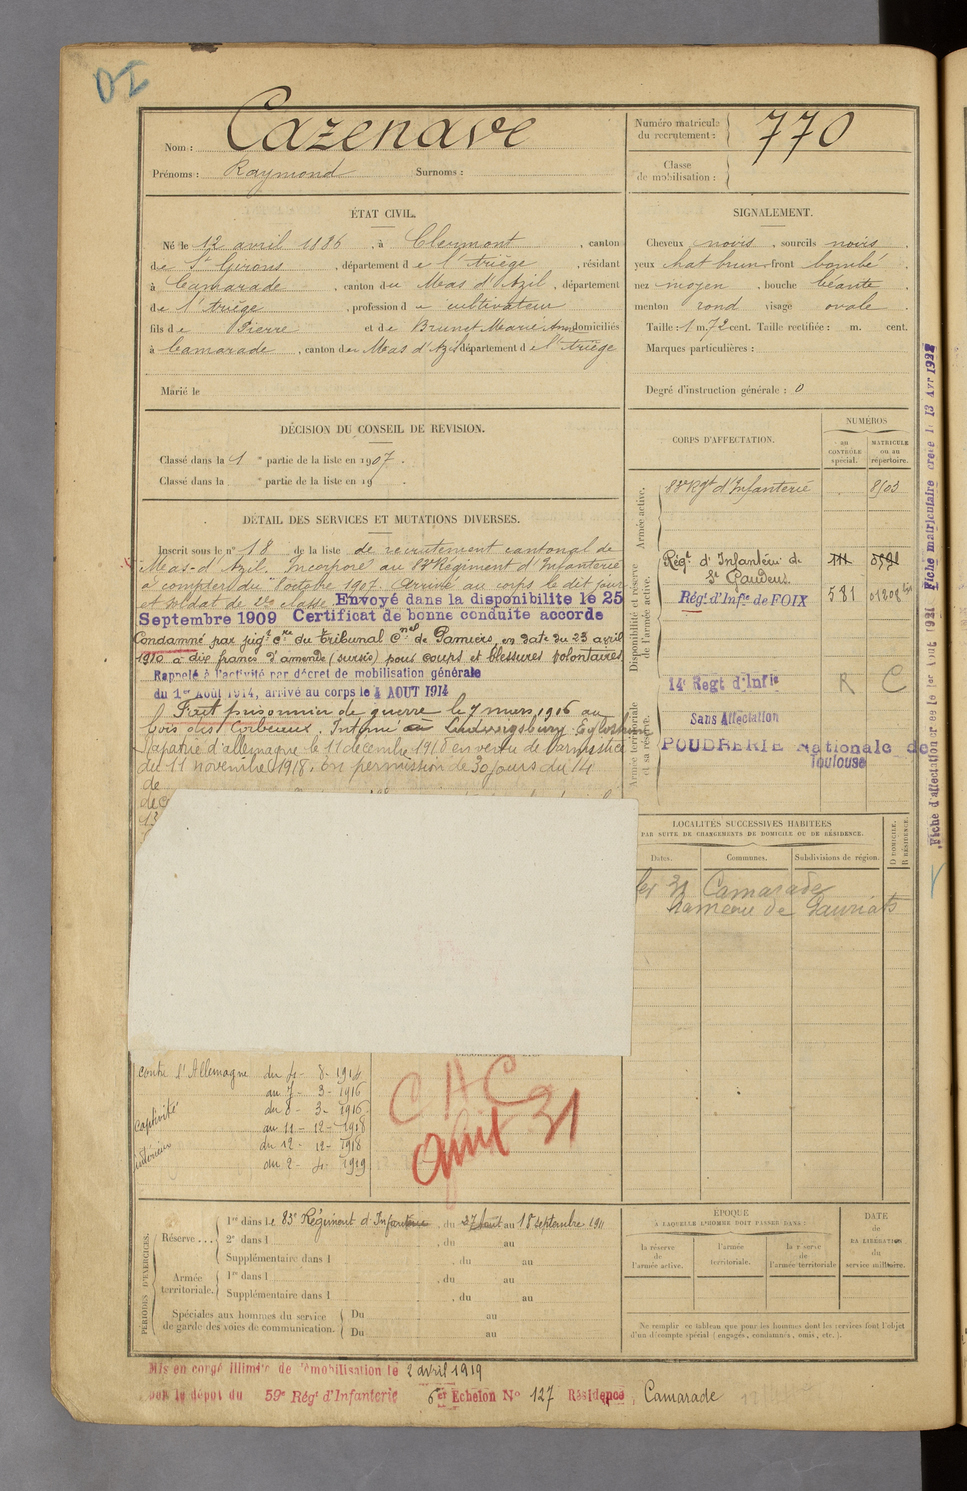 Nom : Cazenave
Prénoms : Raymond Surnoms :
Numéro matricule
du recrutement : 770
Classe
de mobilisation :
ÉTAT CIVIL.
Né le 12 avril 1886, à Clermont, canton
de St Girons, département de l'Ariège, résidant
à Camarade, canton du Mas d'Azil, département
de l'Ariège, profession de cultivateur
fils de Pierre et de Brunet Marie Anne domiciliés
à Camarade, canton du Mas d'Azil département de l'Ariège
Marié le
SIGNALEMENT.
Cheveux noirs, sourcils noirs.
yeux chat brun front bombé.
nez moyen, bouche béante.
menton rond visage ovale.
Taille : 1 m. 72 cent. Taille rectifiée : m. cent.
Marques particulières :
Degré d'instruction générale : 0
DÉCISION DU CONSEIL DE REVISION.
Classé dans la 1e partie de la liste en 1907.
Classé dans la e partie de la liste en 19 .
DÉTAIL DES SERVICES ET MUTATIONS DIVERSES.
Inscrit sous le n° 18 de la liste de recrutement cantonal de
Mas-d'Azil. Incorporé au 83e Régiment d'Infanterie
à compter du 8 octobre 1907. Arrivé au corps le dit jour
et soldat de 2e classe. Envoyé dans la disponibilite le 25
Septembre 1909 Certificat de bonne conduite accorde
Condamné par jugt cre du Tribunal Cnel de Pamiers, en date du 23 avril
1910 à dix francs d'amende (sursis) pour coups et blessures volontaires
Rappelé à l'activité par décret de mobilisation générale
du 1er Août 1914, arrivé au corps le 4 AOUT 1914
Fait prisonnier de guerre le 7 mars 1916 au
bois des Corbeaux. Interné Ludwigsburg Eglosheim
Rapatrié d'allemagne le 11 décembre 1918 en vertu de l'armistice
du 11 novembre 1918. En permission de 30 jours du 14
de
CORPS D'AFFECTATION.
NUMÉROS
au
CONTRÔLE
spécial.
MATRICULE
ou au
répertoire.
Armée active.
83e Rgt d'Infanterie 8103
Disponibilité et réserve
de l'armée active.
Régt d'Infanterie de
St Gaudens
Régt d'Infie de FOIX 581
14e Regt d'Infie R C
Armée territoriale
et sa réserve.
Sans Affectation
POUDRERIE Nationale de
Toulouse
LOCALITÉS SUCCESSIVES HABITÉES
PAR SUITE DE CHANGEMENTS DE DOMICILE OU DE RÉSIDENCE.
Dates. Communes. Subdivisions de région.
D DOMICILE.
R RÉSIDENCE.
31 Camarade
hameau de Gauriats
Fiche d'affectation creee le 1er Aout 1931 Fiche matriculaire creee le 13 Avr 1932
contre l'Allemagne du 4 - 8 - 1914
au 7 - 3 - 1916
captivité du 8 - 3 - 1916
au 11 - 12 - 1918
intérieur du 12 - 12 - 1918
au 2 - 4 - 1919
CAC
31
PÉRIODES D'EXERCICES.
Réserve...
1re dans le 83e Régiment d'Infanterie, du 27 août au 18 septembre 1911
2e dans l , du au
Supplémentaire dans l , du au
Armée
territoriale.
1re dans l , du au
Supplémentaire dans l , du au
Spéciales aux hommes du service
de garde des voies de communication.
Du au
Du au
ÉPOQUE
À LAQUELLE L'HOMME DOIT PASSER DANS :
la réserve
de
l'armée active.
l'armée
territoriale.
la réserve
de
l'armée territoriale
DATE
de
LA LIBÉRATION
du
service militaire.
Ne remplir ce tableau que pour les hommes dont les services font l'objet
d'un décompte spécial (engagés, condamnés, omis, etc.).
Mis en congé illimité de démobilisation le 2 avril 1919
par le dépôt du 59e Régt d'Infanterie 6e Echelon N° 127 Résidence, Camarade